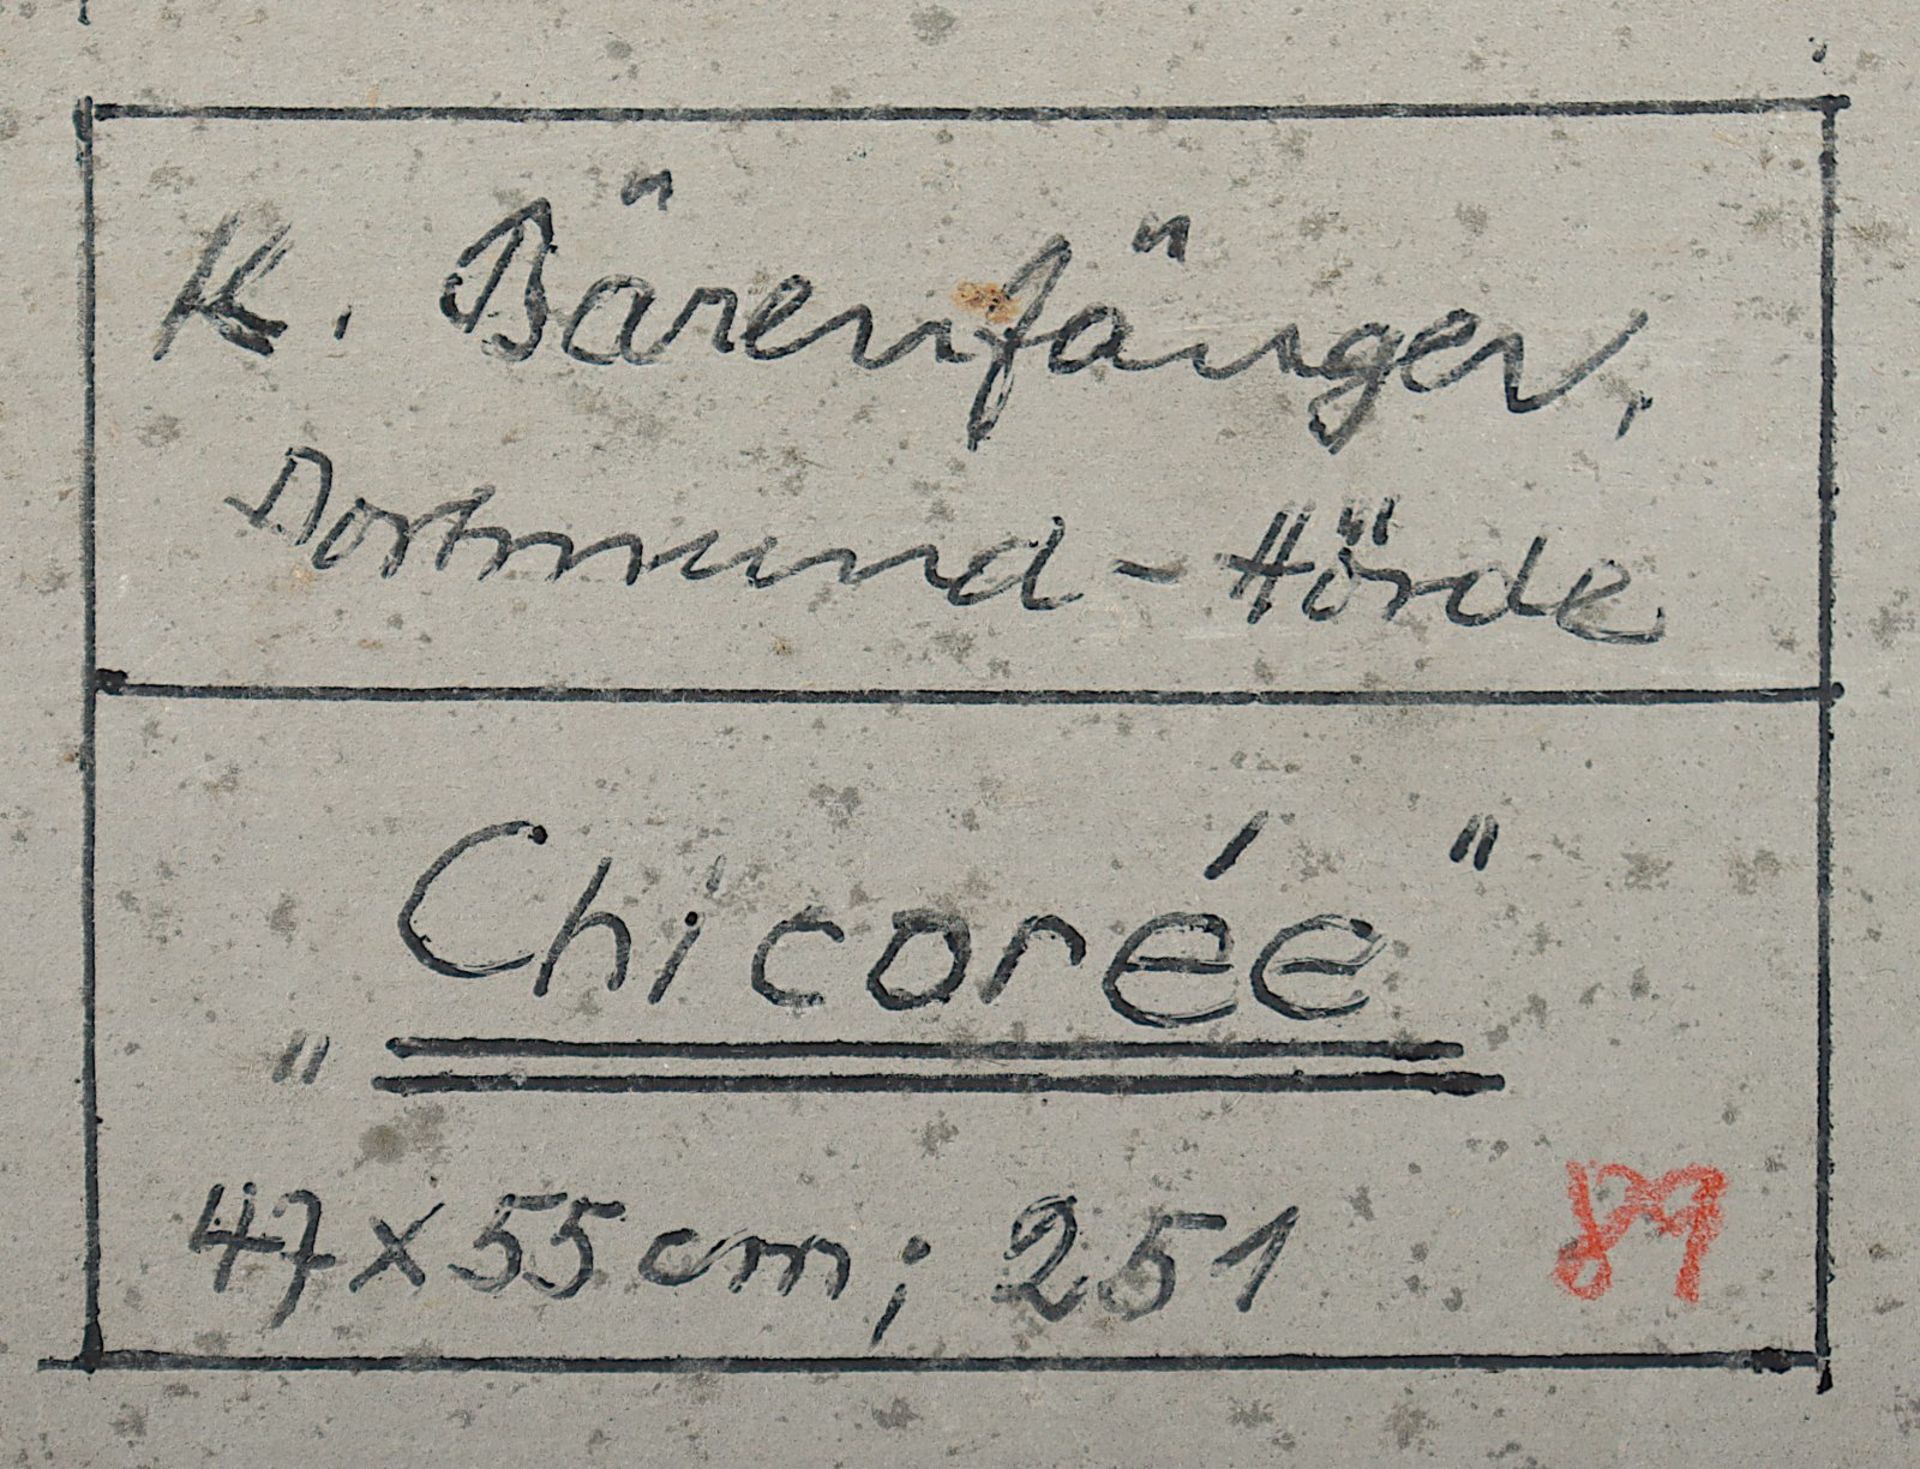 K. Bärenfänger,
Dortmund-Hörde
„Chicorée"
47 x 55 cm; 251 89